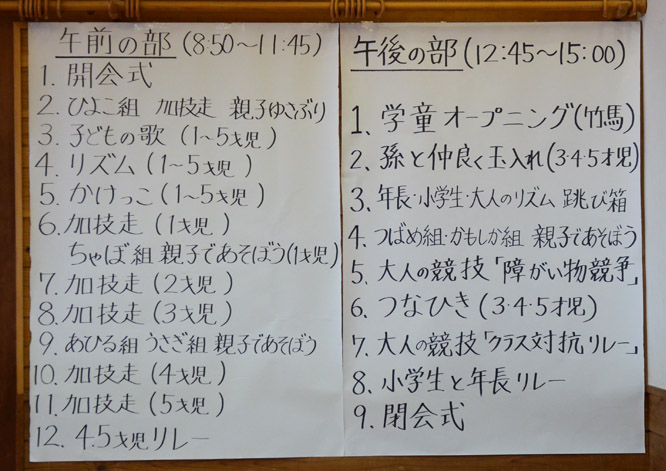 午前の部(8:50〜11:45)
1. 開会式
2. ひよこ組 加技走 親子ゆさぶり
3. 子どもの歌(1〜5才児)
4. リズム(1〜5才児)
5. かけっこ(1〜5才児)
6. 加技走(1才児)
ちゃぼ組 親子であそぼう(1才児)
7. 加技走(2才児)
8. 加技走(3才児)
9. あひる組 うさぎ組 親子であそぼう
10. 加技走(4才児)
11. 加技走(5才児)
12. 4.5才児リレー
午後の部(12:45〜15:00)
1. 学童オープニング(竹馬)
2. 孫と仲良く玉入れ(3・4・5才児)
3. 年長・小学生・大人のリズム 跳び箱
4. つばめ組・かもしか組 親子であそぼう
5. 大人の競技「障がい物競争」
6. つなひき(3・4・5才児)
7. 大人の競技「クラス対抗リレー」
8. 小学生と年長リレー
9. 閉会式